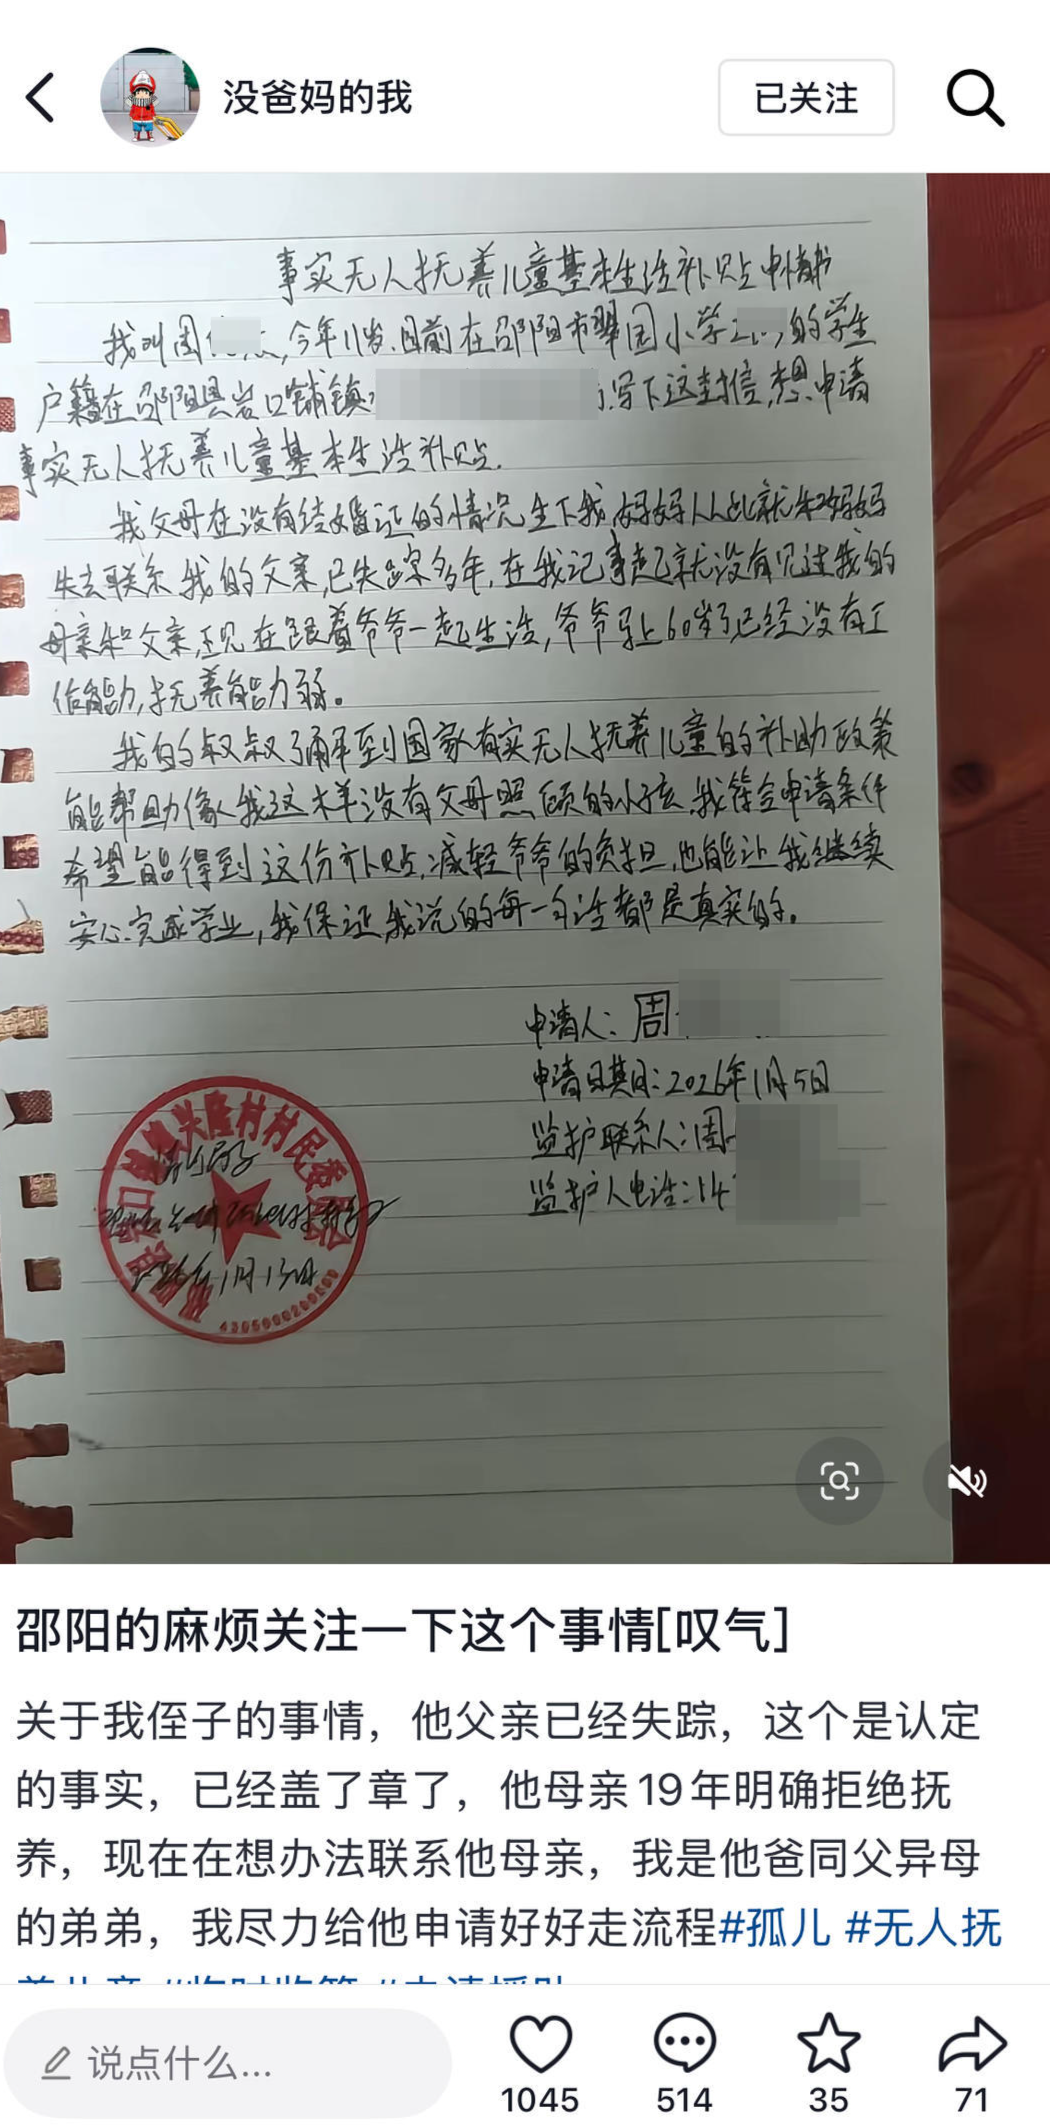 没爸妈的我
已关注
事实无人抚养儿童基本生活补贴申请书
我叫周 今年11岁.目前在邵阳市翠园小学 的学生
户籍在邵阳县岩口铺镇 写下这封信,想申请
事实无人抚养儿童基本生活补贴.
我父母在没有结婚证的情况生下我,妈妈从此就和妈妈
失去联系,我的父亲已失踪多年,在我记事起就没有见过我的
母亲和父亲,现在跟着爷爷一起生活,爷爷马上60岁了已经没有工
作能力,抚养能力弱。
我的叔叔了解到国家有实无人抚养儿童的补助政策
能帮助像我这样没有父母照顾的小孩,我符合申请条件
希望能得到这份补贴,减轻爷爷的负担,也能让我继续
安心完成学业,我保证我说的每一句话都是真实的。
申请人:周
申请日期:2026年1月5日
监护联系人:周
监护人电话:14
口铺镇兴隆村村民委员会
情况属实
1月13日
邵阳的麻烦关注一下这个事情[叹气]
关于我侄子的事情，他父亲已经失踪，这个是认定
的事实，已经盖了章了，他母亲19年明确拒绝抚
养，现在在想办法联系他母亲，我是他爸同父异母
的弟弟，我尽力给他申请好好走流程#孤儿 #无人抚
说点什么...
1045
514
35
71